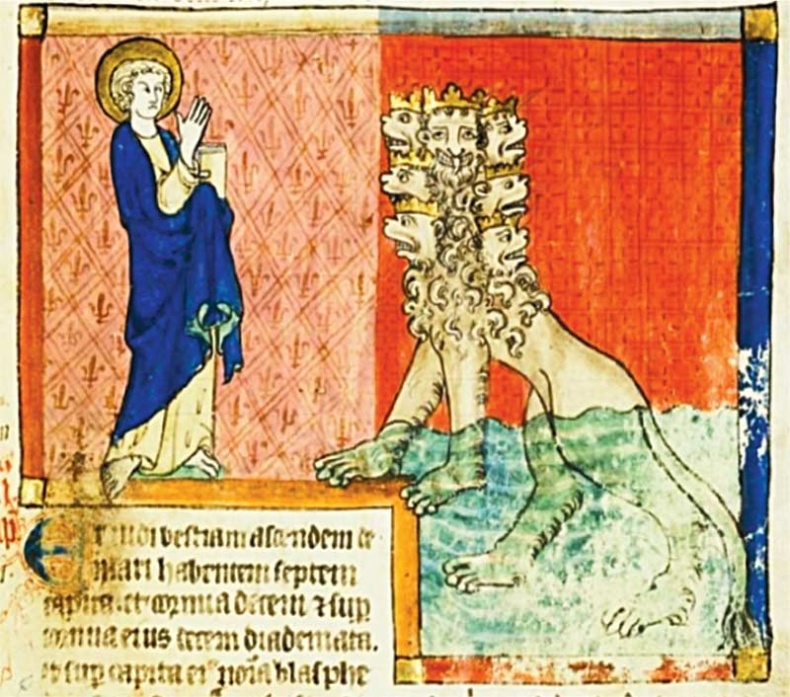 Et vidi bestiam ascendem de
mari habentem septem
capita. et cornua decem ⁊ sup
cornua eius decem diademata.
et sup capita ei noīa blasphe